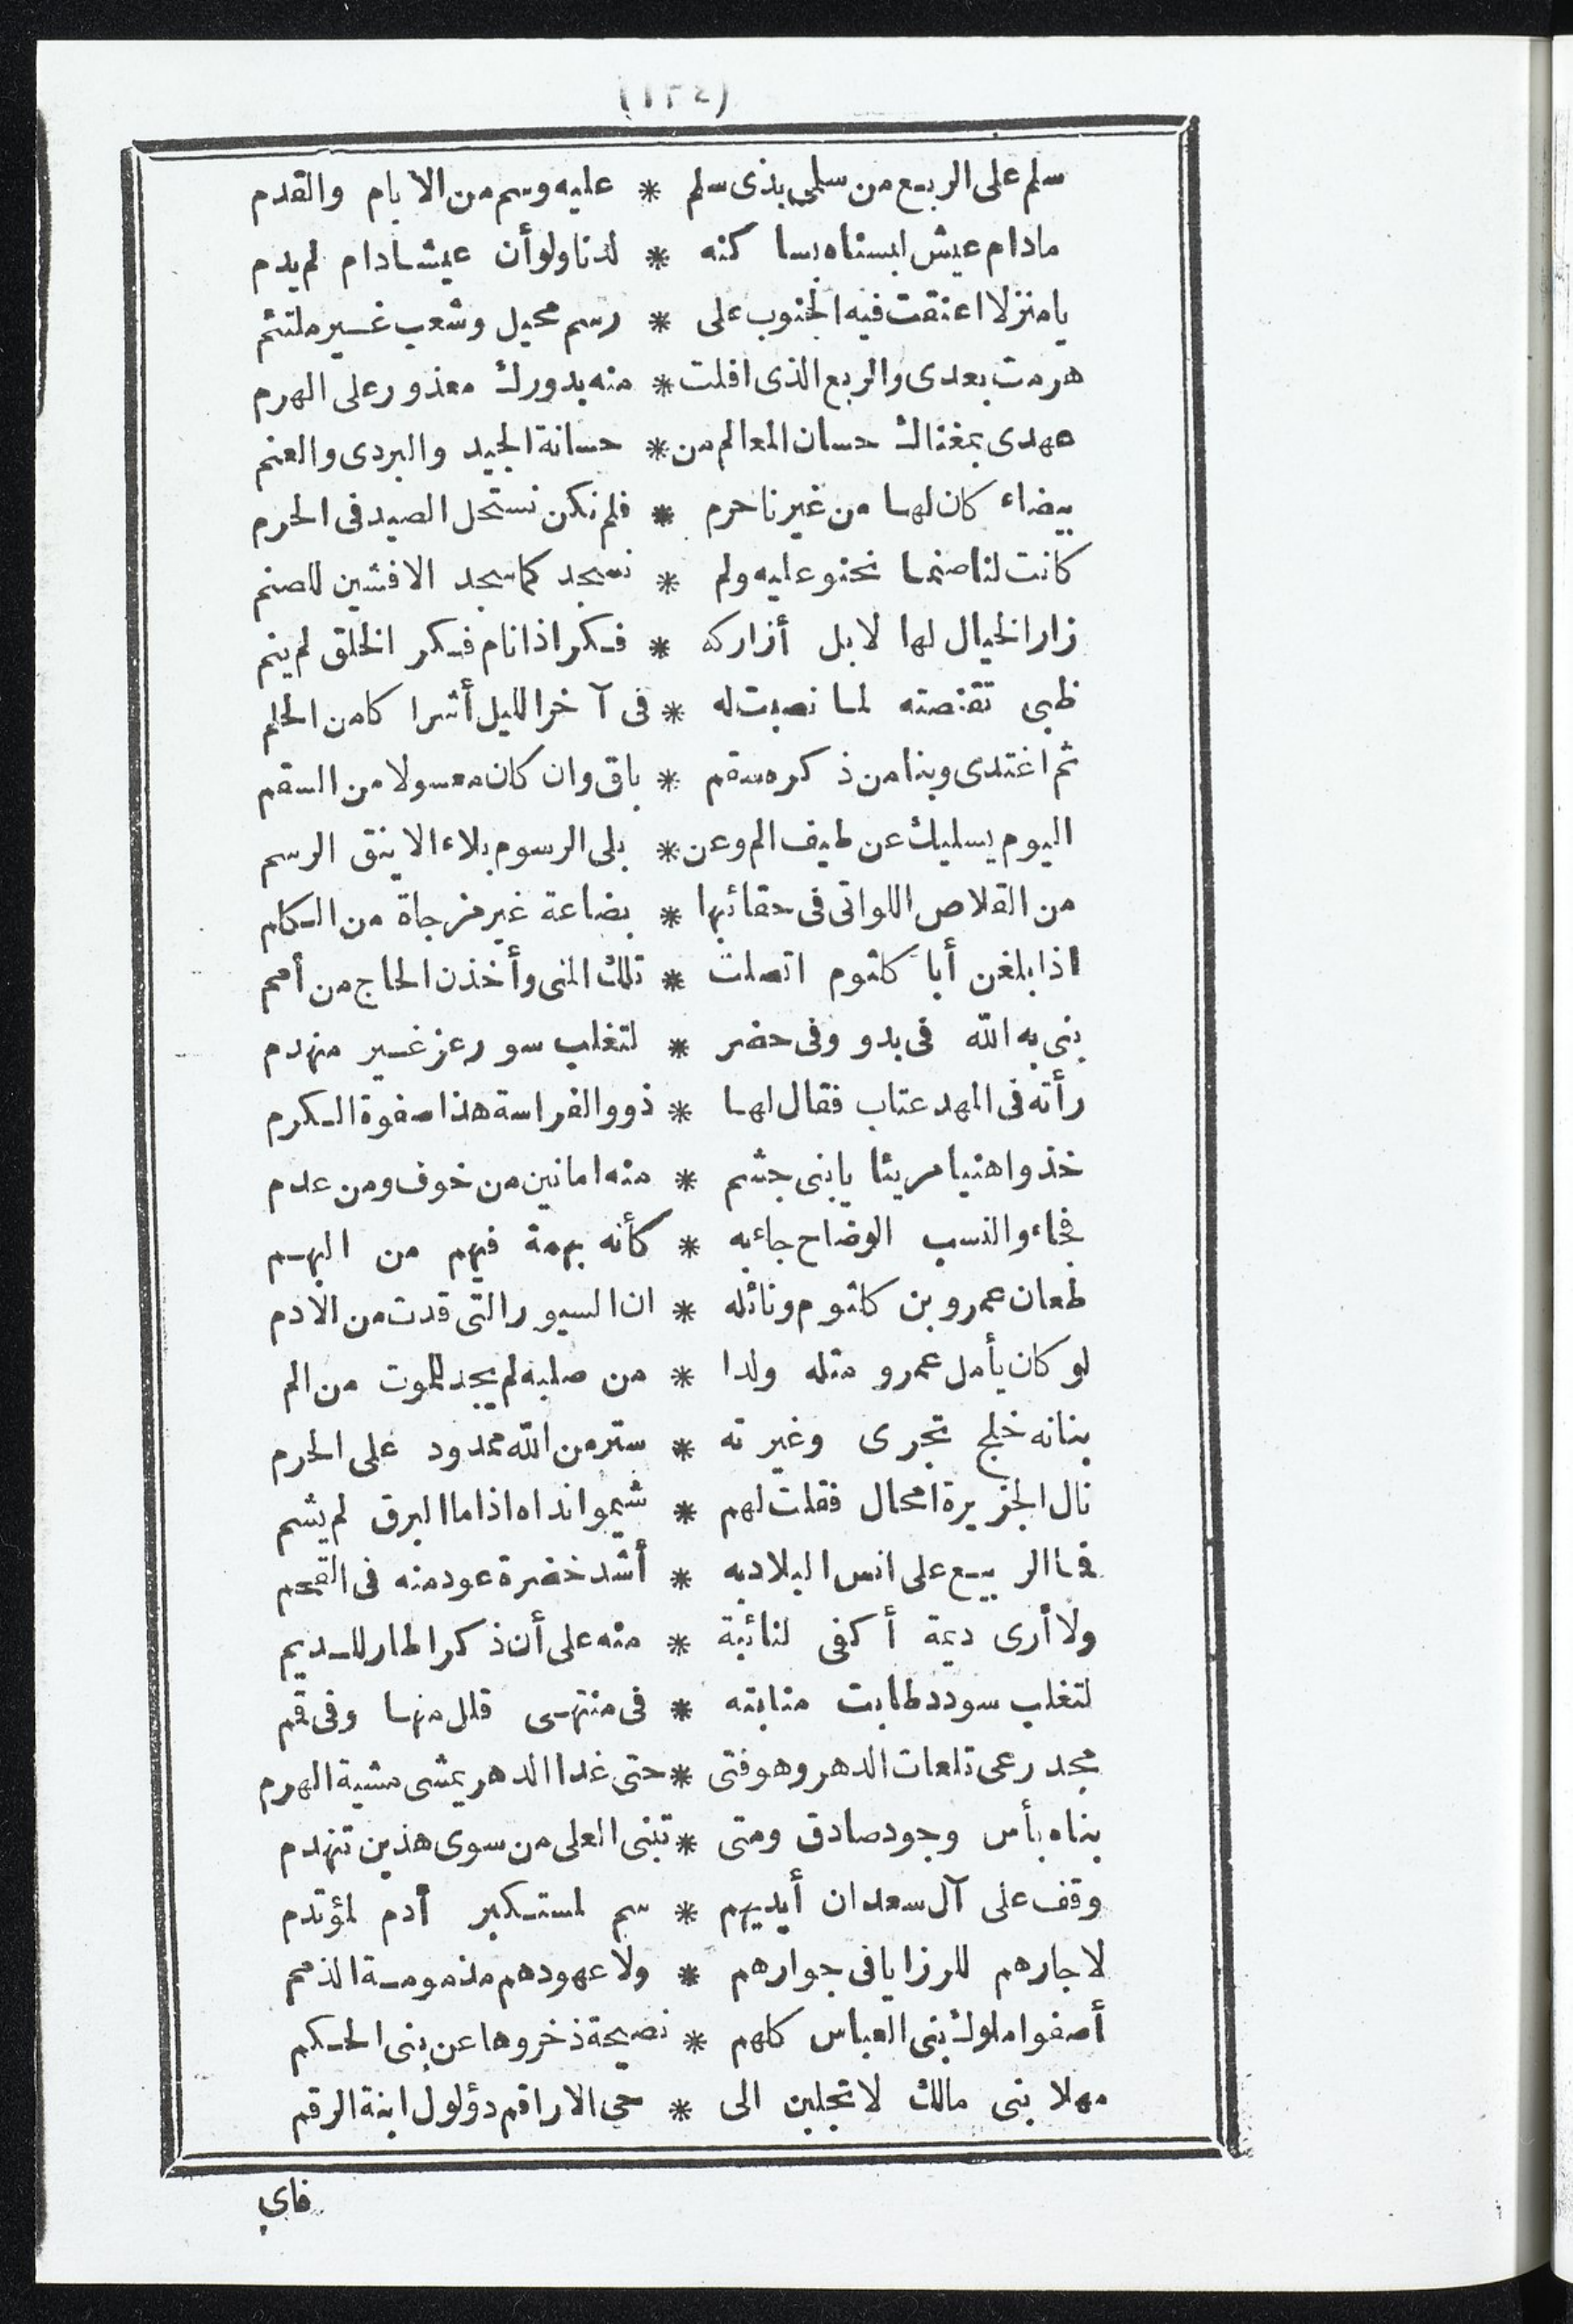 (١٣٤)
سلم على الربع من سلمى بذى سلم * عليه وسم من الايام والقدم
مادام عيش لبسناه بسا كنه * لدنا ولوأن عيشا دام لم يدم
يا منزلا اعنقت فيه الجنوب على * رسم محيل وشعب غير ملتئم
هرمت بعدى والربع الذى افلت * منه بدورك معذور على الهرم
عهدى بمغناك حسان المعالم من * حسانة الجيد والبردى والعنم
بيضاء كان لها من غيرنا حرم * فلم نكن نستحل الصيد فى الحرم
كانت لنا صنما نحنو عليه ولم * نسجد كما سجد الافشين للصنم
زار الخيال لها لا بل أزاركه * فكر اذا نام فكر الخلق لم ينم
ظبى تقنصته لما نصبت له * فى آخر الليل أشرا كا من الحلم
ثم اغتدى وبنا من ذكره سقم * باق وان كان معسولا من السقم
اليوم يسليك عن طيف الم وعن * بلى الرسوم بلاء الاينق الرسم
من القلاص اللواتى فى حقائبها * بضاعة غير مزجاة من الكلم
اذا بلغن أبا كلثوم اتصلت * تلك المنى وأخذن الحاج من أمم
بنى به الله فى بدو وفى حضر * لتغلب سور عز غير منهدم
رأته فى المهد عتاب فقال لها * ذوو الفراسة هذا صفوة الكرم
خذوا هنيا مريئا يا بنى جشم * منه امانين من خوف ومن عدم
فجاء والنسب الوضاح جاء به * كأنه بهمة فيهم من البهم
طعان عمرو بن كلثوم ونائله * ان السيور التى قدت من الادم
لو كان يأمل عمرو مثله ولدا * من صلبه لم يجد للموت من الم
بنانه خلج تجرى وغيرته * ستر من الله ممدود على الحرم
نال الجزيرة امحال فقلت لهم * شيموا نداه اذا ما البرق لم يشم
فما الربيع على انس البلاد به * أشد خضرة عود منه فى القحم
ولا أرى ديمة أكفى لنائبة * منه على أن ذكرا طار للديم
لتغلب سودد طابت منابته * فى منتهى قلل منها وفى قمم
مجد رعى تلعات الدهر وهو فتى * حتى غدا الدهر يمشى مشية الهرم
بناه بأس وجود صادق ومتى * تبنى العلى من سوى هذين تنهدم
وقف على آل سعد ان أيديهم * سم لمستكبر أدم لمؤتدم
لا جارهم للرزايا فى جوارهم * ولا عهودهم مذمومة الذمم
أصفوا ملوك بنى العباس كلهم * نصيحة ذخروها عن بنى الحكم
مهلا بنى مالك لا تجلبن الى * حى الاراقم دؤلول ابنة الرقم
فاى